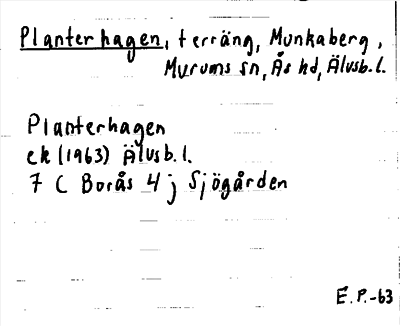 Planterhagen, terräng, Munkaberg,
Murums sn, Ås hd, Älvsb. l.
Planterhagen
ek (1963) Älvsb. l.
7 C Borås 4 j Sjögården
E. P. -63